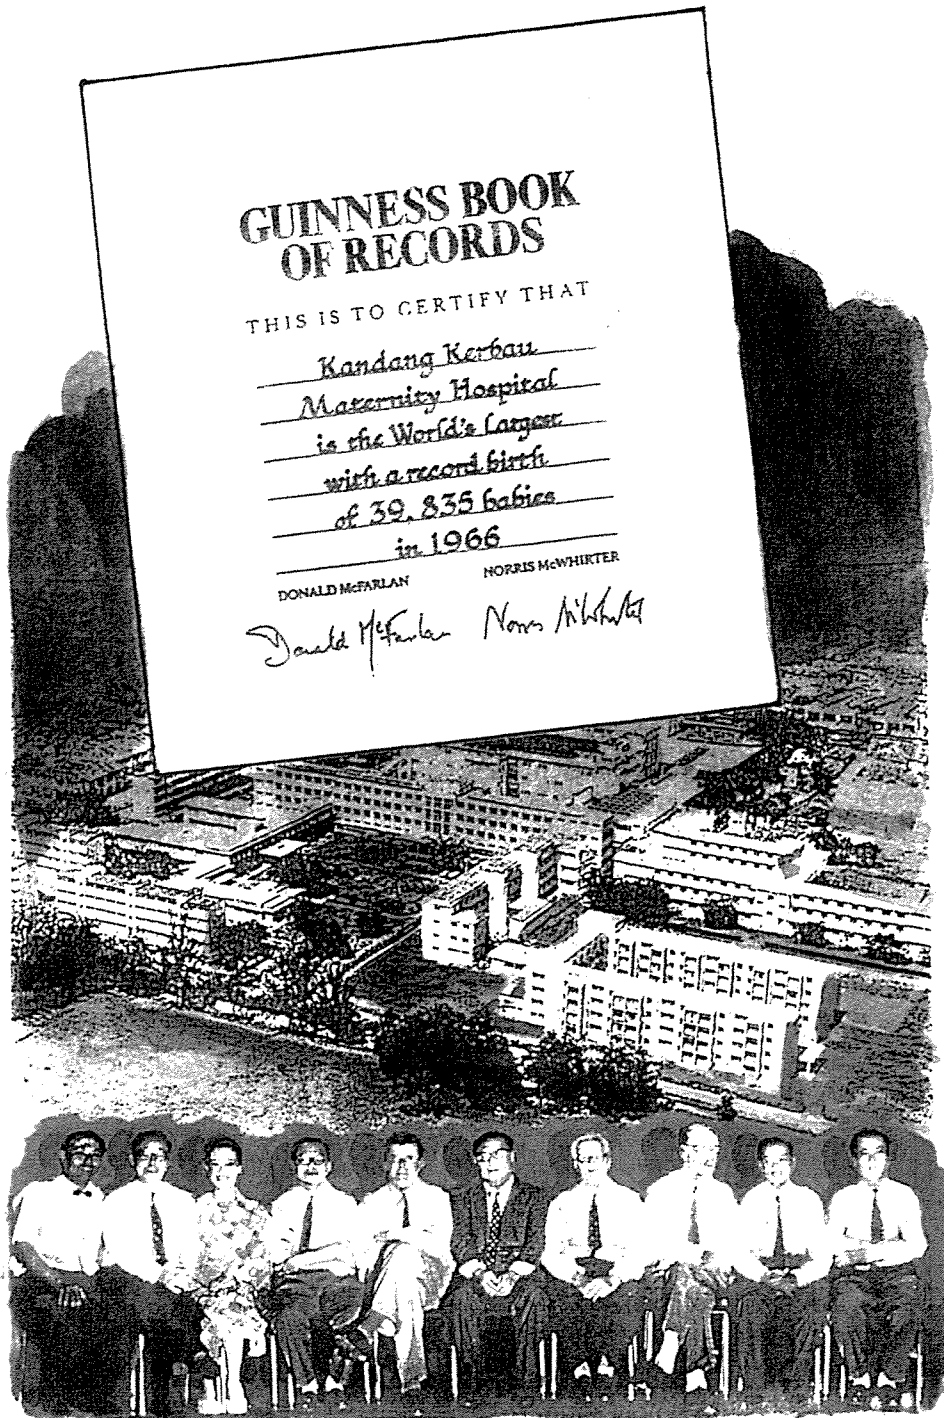 GUINNESS BOOK
OF RECORDS
THIS IS TO CERTIFY THAT
Kandang Kerbau
Maternity Hospital
is the World's Largest
with a record birth
of 39,835 babies
in 1966
DONALD McFARLAN NORRIS McWHIRTER
Donald McFarlan Norris McWhirter